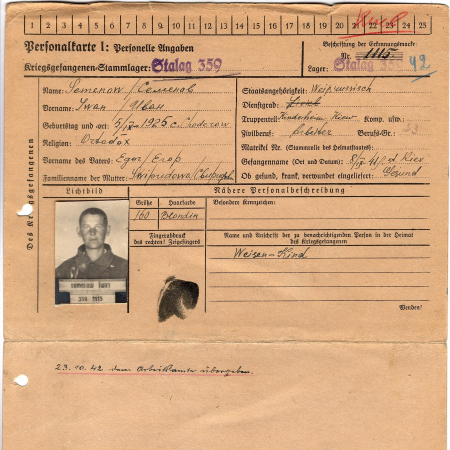 1 2 3 4 5 6 7 8 9 10 11 12 13 14 15 16 17 18 19 20 21 22 23 24 25
Personalkarte I: Personelle Angaben
Kriegsgefangenen-Stammlager: Stalag 359
Beschriftung der Erkennungsmarke
Nr. 1115
Lager: Stalag 359 42
Des Kriegsgefangenen
Name: Semenow/Семенов
Vorname: Iwan/Иван
Geburtstag und -ort: 5/IX 1925
Religion: Ortodox
Vorname des Vaters: Egor/Егор
Familienname der Mutter:
Staatsangehörigkeit:
Dienstgrad:
Truppenteil: Kiew Komp. usw.
Zivilberuf: Arbeiter Berufs-Gr.:
Matrikel Nr. (Stammrolle des Heimatstaates):
Gefangennahme (Ort und Datum): Kiev
Ob gesund, krank, verwundet eingeliefert: Gesund
Lichtbild
Nähere Personalbeschreibung
Größe
Haarfarbe
Besondere Kennzeichen:
160
Blondin
Fingerabdruck
des rechten! Zeigefingers
Name und Anschrift der zu benachrichtigenden Person in der Heimat
des Kriegsgefangenen
Weisen-Kind
SEMENOW IWAN
359 1115
Wenden!
23.10.42 dem Arbeitsamte übergeben.